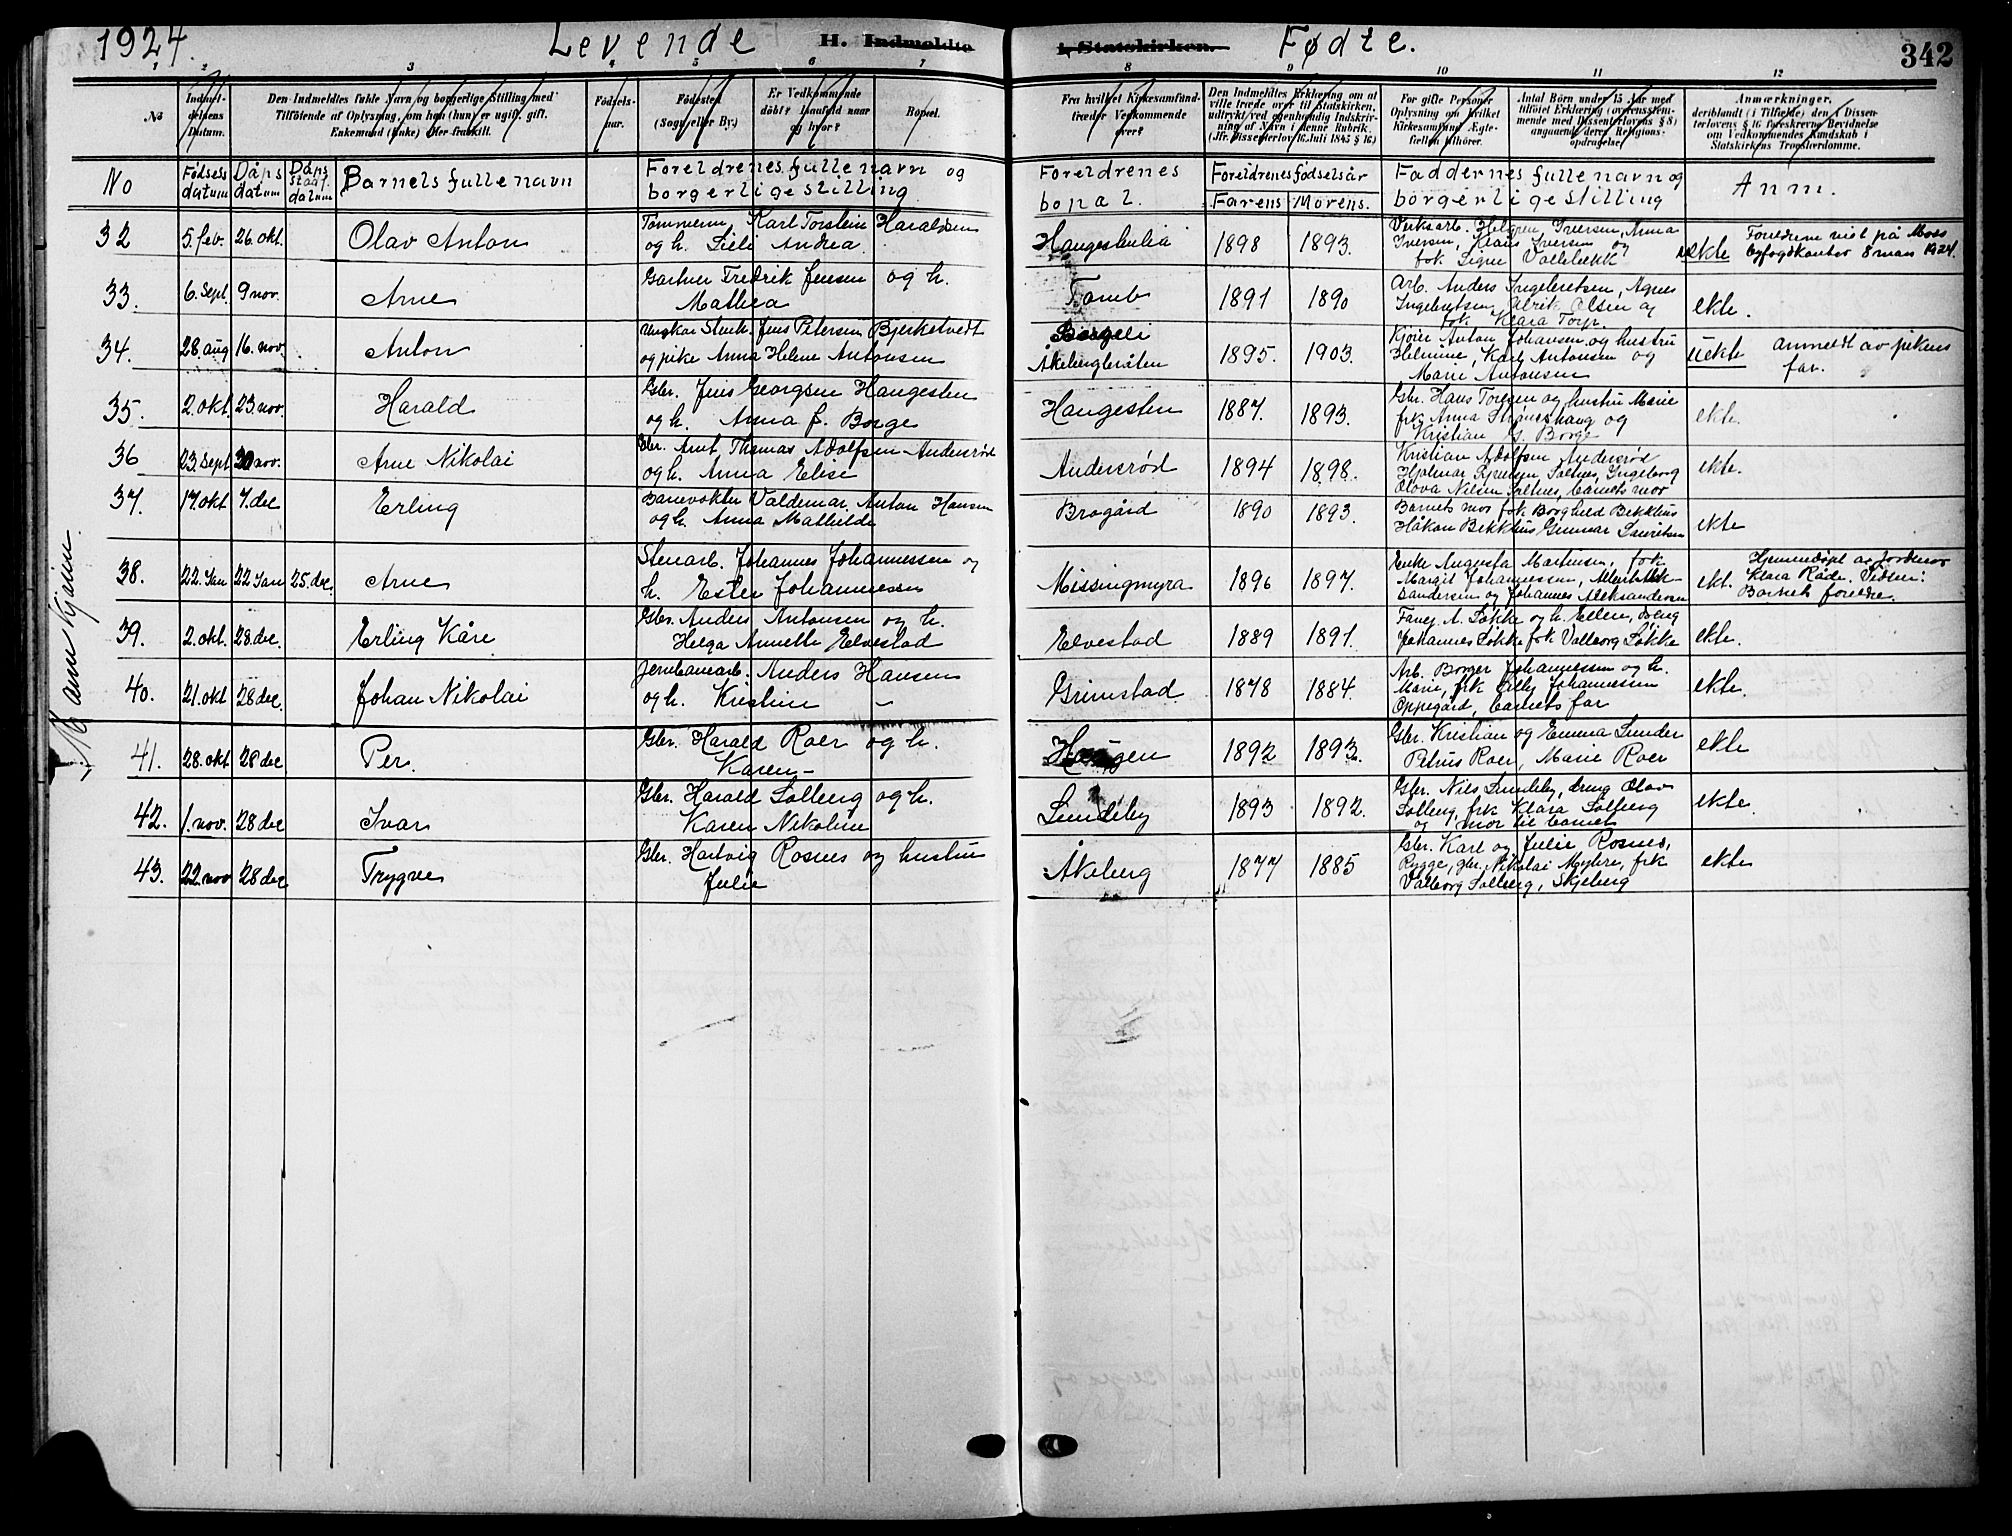 1924.
Levende
H. Indmeldte
i Statskirken.
Fødte.
342
1 2 3 4 5 6 7 8 9 10 11 12
No
Indmel-
delsens
Datum.
Den Indmeldtes fulde Navn og borgerlige Stilling med
Tilföiende af Oplysning, om han (hun) er ugift, gift,
Enkemand (Enke) eller fraskilt.
Födsels-
aar.
Födested
(Sogn eller By.)
Er Vedkommende
döbt? Isaafald naar
og hvor?
Bopæl.
Fra hvilket Kirkesamfund
træder Vedkommende
over?
Den Indmeldtes Erklæring om at
ville træde over til Statskirken,
udtrykt ved egenhændig Indskriv-
ning af Navn i denne Rubrik.
(Jfr. Dissenterlov 16. Juli 1845 § 16)
For gifte Personer
Oplysning om hvilket
Kirkesamfund Ægte-
fællen tilhörer.
Antal Börn under 15 Aar med
tilföiet Erklæring (overensstem-
mende med Dissenterlovens § 8)
angaaende deres Religions-
opdragelse
Anmærkninger,
deriblandt (i Tilfælde) den i Dissen-
terlovens § 16 foreskrevne Bevidnelse
om Vedkommendes Kundskab i
Statskirkens Troeslærdomme.
No
Fødsels
datum
Dåps
datum
Dåps
stadf.
datum
Barnets fulle navn
Foreldrenes fulle navn og
borgerlige stilling
Foreldrenes
bopæl.
Foreldrenes fødselsår
Farens Morens.
Faddernes fulle navn og
borgerlige stilling
Anm.
Mannkjønn.
32 5. feb. 26. okt. Olav Anton
Tømmerm. Karl Torstein Haraldsen
og h. Andrea
1898 1893.
Iversen, Klaus Iversen og
frk Signe
ekte
Foreldrene viet på Moss
Byfogdkontor 8 mars 1924.
33. 6. sept. 9 nov. Arne
Gartner Fredrik Jensen og h.
Mathea
Tomb 1891 1890
Arb. Anders Ingebretsen, Agnes
Ingebretsen, Alrik Olsen og
frk Klara Torp.
ekte.
34. 28. aug 16. nov. Anton
Ungkar Stenh. Jens Petersen Bjerketvedt
og pike Anna Helene Antonsen
Åkebergbråten
1895. 1903.
Kjører Anton Johansen og hustru
Helmine, Karl Antonsen og
Marie Antonsen
uekte
anmeldt av pikens
far.
35. 2. okt. 23. nov. Harald
Gbr. Jens Georgsen Haugesten
og h. Anna J. Borge
Haugesten 1887. 1893.
Gbr. Hans Torgersen og hustru Marie
frk. Anna Strømshaug og
Kristian J. Borge
ekte.
36 23. sept 30 nov. Arne Nikolai
Gbr. Arnt Thomas Adolfsen Andersrød
og h. Anna Elise
Andersrød 1894 1898.
Kristian Adolfsen Andersrød
Hjalmar Syversen Saltnes, Ingeborg
Olova Nilsen Saltnes, barnets mor
ekte.
37. 17. okt 7. dec Erling
Banevokter Valdemar Anton Hansen
og h. Anna Mathilde
Brogård 1890 1893.
Barnets mor frk Borghild Bekkhus
Håkon Bekkhus Gunnar Lauritsen
ekte
38. 22. Jan 22 Jan 25. dec. Arne
Stenarb. Johannes Johannessen og
h. Ester Johannessen
Missingmyra 1896 1897.
Enke Augusta Martinsen, frk
Margit Johannessen,
og Johannes Aleksandersen
ekt.
Hjemmedøpt av Jordmor
Klara Råde. Vidner:
Barnets foreldre.
39. 2. okt. 28. dec. Erling Kåre
Gbr. Anders Antonsen og h.
Helga Annette Elvestad
Elvestad 1889 1891.
A. Løkke og h. Ellen, dreng
Johannes Løkke frk Valborg Løkke
ekte.
40. 21. okt 28 dec. Johan Nikolai
Jernbanearb. Anders Hansen
og h. Kristine –
Grimstad 1878 1884
Arb. Borger Johannessen og h.
Marie, frk Lilly Johannessen
Oppegård, barnets far
ekte.
41. 28. okt 28 dec Per.
Gbr. Harald Roer og h.
Karen –
Haugen 1892 1893.
Gbr. Kristian og Emma Sunder
Petrus Roer, Marie Roer
ekte
42. 1. nov. 28 dec Ivar
Gbr. Harald Solberg og h.
Karen Nikoline
Sundeby 1893 1892.
Gbr. Nils Sundeby, dreng Olav
Solberg, frk Klara Solberg
og mor til barnet
ekte
43. 22. nov 28 dec Trygve
Gbr. Hartvig Rosnes og hustru
Julie
Åkeberg 1877 1885
Gbr. Karl og Julie Rosnes,
Rygge, gbr. Nikolai Myhre, frk
Valborg Solberg, Skjeberg
ekte